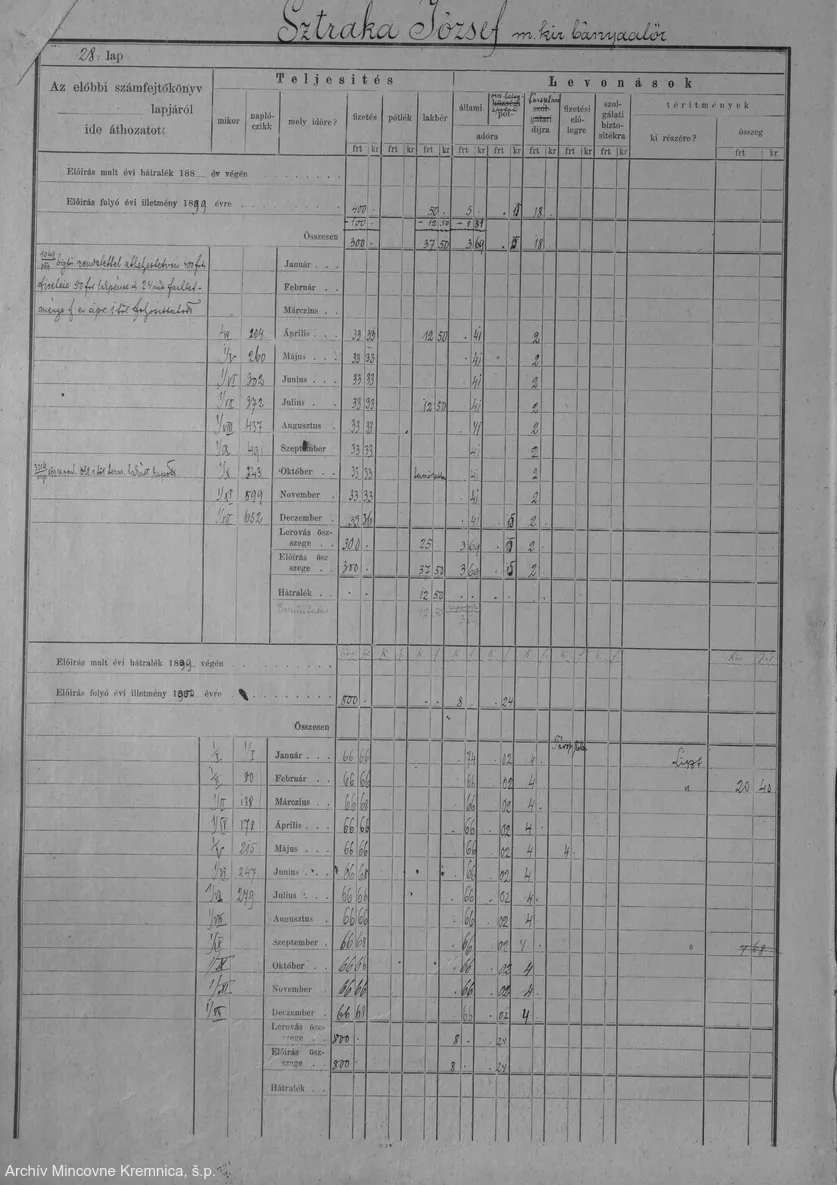 Sztraka József m. kir bányaalőr
28. lap
Az előbbi számfejtőkönyv
lapjáról
ide áthozatott
Teljesítés
Levonások
mikor
napló-czikk
mely időre?
fizetés
pótlék
lakbér
állami
pót-
adóra
díjra
fizetési elő-legre
szol-gálati bizto-sítékra
térítmények
ki részére?
összeg
frt kr frt kr frt kr frt kr frt kr frt kr frt kr frt kr frt kr
Előirás mult évi hátralék 188 év végén
Előirás folyó évi illetmény 1899 évre 400 - 50 - 5 - . 15 18
- 100 - - 12 50 - 1 31
Összesen 300 - 37 50 3 69 . 15 18
Január . . .
Február . . .
Márczius . .
1/IV 204 Április . . . 33 33 12 50 . 41 2
1/V 260 Május . . . 33 33 . 41 2
1/VI 302 Junius . . . 33 33 . 41 2
1/VII 372 Julius . . . 33 33 12 50 . 41 2
1/VIII 437 Augusztus . 33 33 . 41 2
1/IX 491 Szeptember . 33 33 . 41 2
1/X 543 Október . . 33 33 . 41 2
1/XI 599 November . . 33 33 . 41 2
1/XII 652 Deczember . 33 36 . 41 . 15 2
Lerovás ösz-
szege . . 300 . 25 . 3 69 . 15 2
Előirás ösz
szege . . 300 . 37 50 3 69 . 15 2
Hátralék . . . . 12 50 . .
Előirás mult évi hátralék 1899 végén
Előirás folyó évi illetmény 1900 évre 800 - . . 8 . . 24
Összesen
1/I 1/I Január . . . 66 66 . 74 . 02 4 Liszt
80 Február . . 66 66 . 66 . 02 4 " 20 40
1/III 138 Márczius . . 66 68 . 66 . 02 4
1/IV 178 Április . . . 66 66 . 66 . 02 4
1/V 215 Május . . . 66 66 . 66 . 02 4 4
1/VI 247 Junius . . . 66 68 . 66 . 02 4
1/VII 279 Julius . . . 66 66 . 66 . 02 4
1/VIII Augusztus . 66 66 . 66 . 02 4
1/IX Szeptember . 66 68 . 66 . 02 4 " 7 68
1/X Október . . 66 66 . 66 . 02 4
1/XI November . . 66 66 . 66 . 02 4
1/XII Deczember . 66 68 . 66 . 02 4
Lerovás ösz-
szege . . 800 . 8 . . 24
Előirás ösz-
szege . . 800 . 8 . . 24
Hátralék . .
Archív Mincovne Kremnica, š.p.